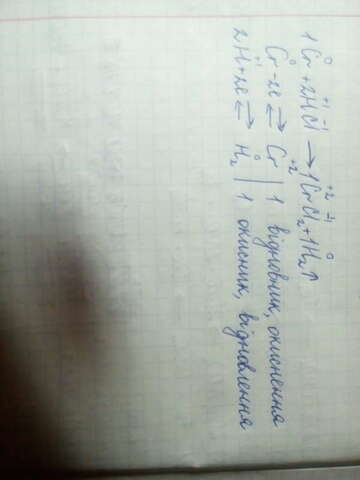 1Cr⁰ + 2H⁺¹Cl⁻¹ → 1Cr⁺²Cl₂⁻¹ + 1H₂⁰↑
Cr⁰ - 2e ⇄ Cr⁺² | 1 відновник, окиснення
2H⁺¹ + 2e ⇄ H₂⁰ | 1 окисник, відновлення